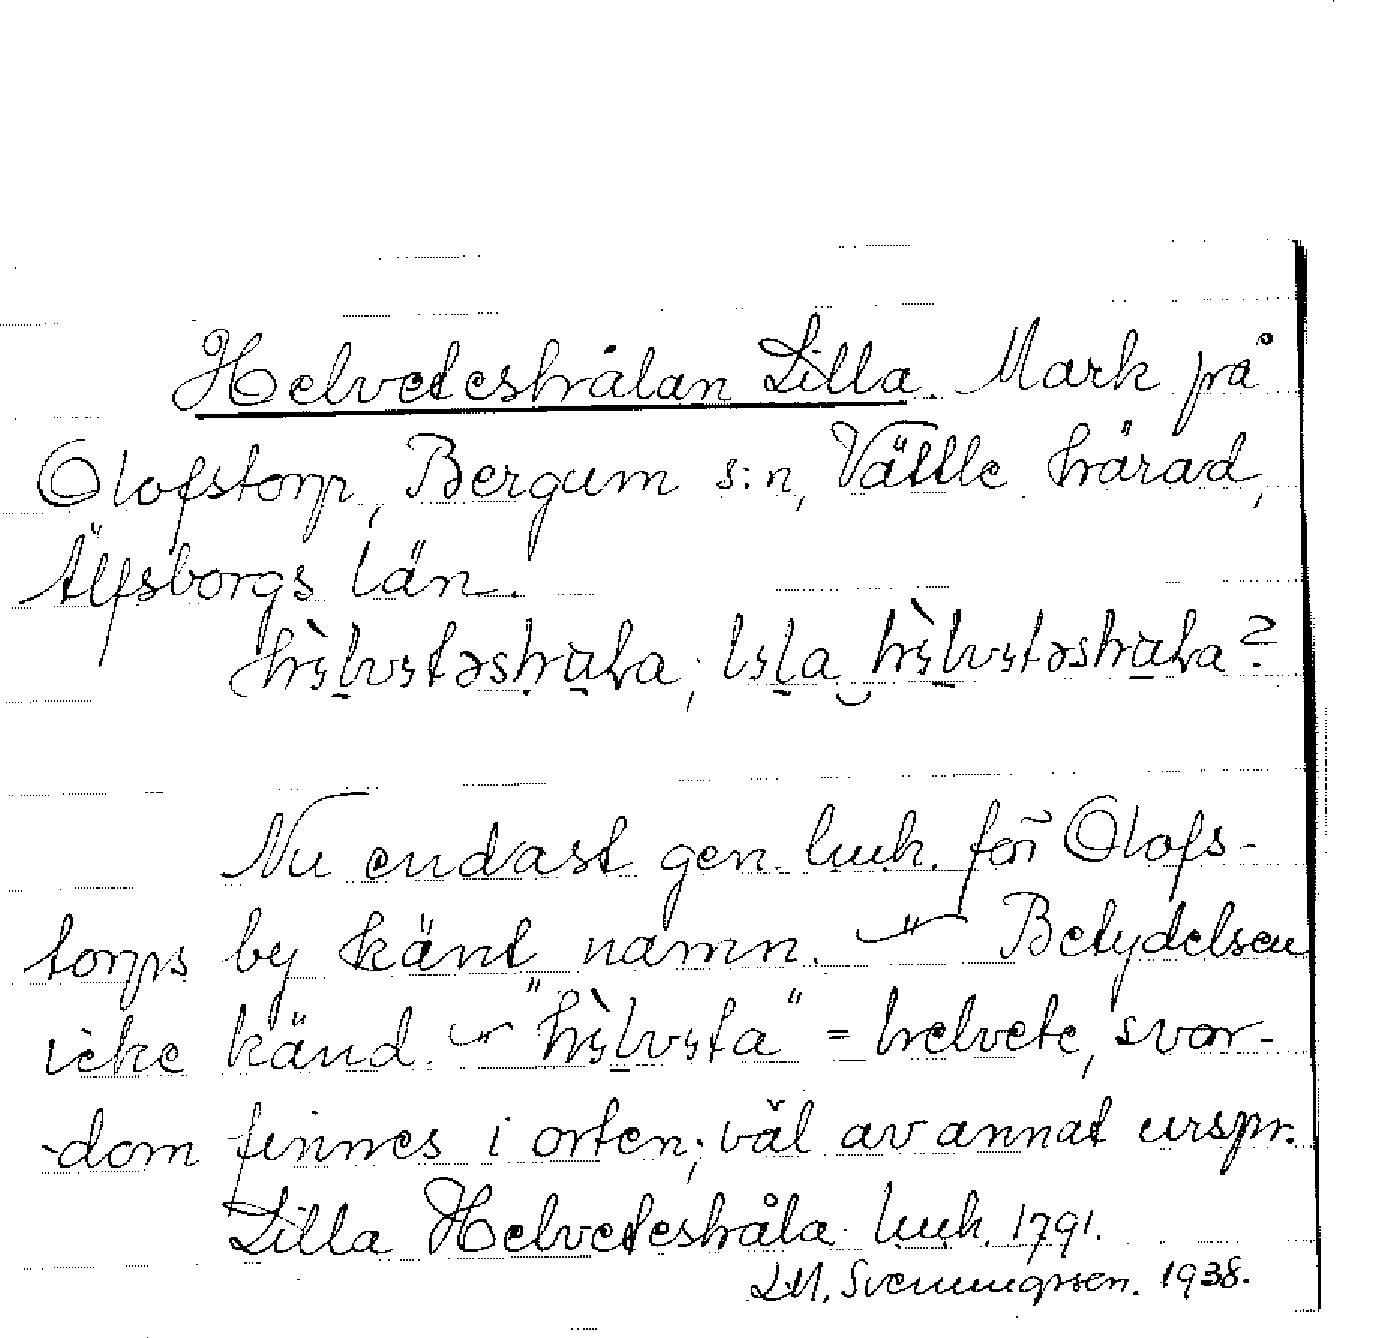 Helvedeshålan Lilla. Mark på
Olofstorp, Bergum s:n, Vättle härad,
Älfsborgs län.
Nu endast gen. luuh. för Olofs-
torps by känt namn. — Betydelsen
icke känd. — = helvete, svor-
-dom finnes i orten; väl av annat urspr.
Lilla Helvedeshåla luuh. 1791.
L.M. Svenungsson. 1938.